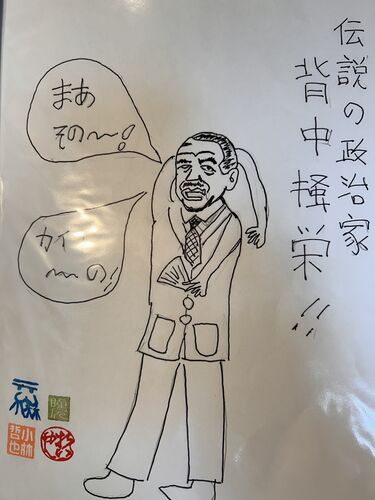 伝説の政治家
背中掻栄!!
まあ
その～!
カイイ
～の!
小林
哲也